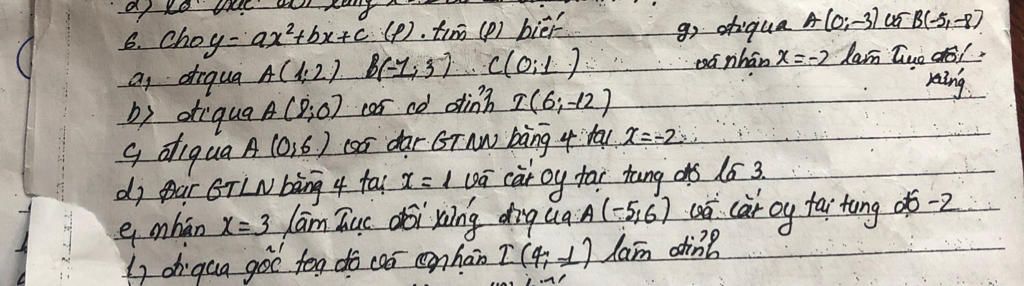 6. Cho y = ax²+bx+c (P). tìm (P) biết
a, đi qua A(1;2) B(-1;3) C(0;1)
b) đi qua A(8;0) và có đỉnh I(6;-12)
c, đi qua A(0;6) và đạt GTNN bằng 4 tại x=-2.
d, Đạt GTLN bằng 4 tại x=1 và cắt oy tại tung độ là 3.
e, nhận x=3 làm trục đối xứng đi qua A(-5;6) và cắt oy tại tung độ -2
f, đi qua gốc toạ độ và nhận I(4;-1) làm đỉnh
g, đi qua A(0;-3) và B(-5;-8)
và nhận x=-2 làm trục đối
xứng